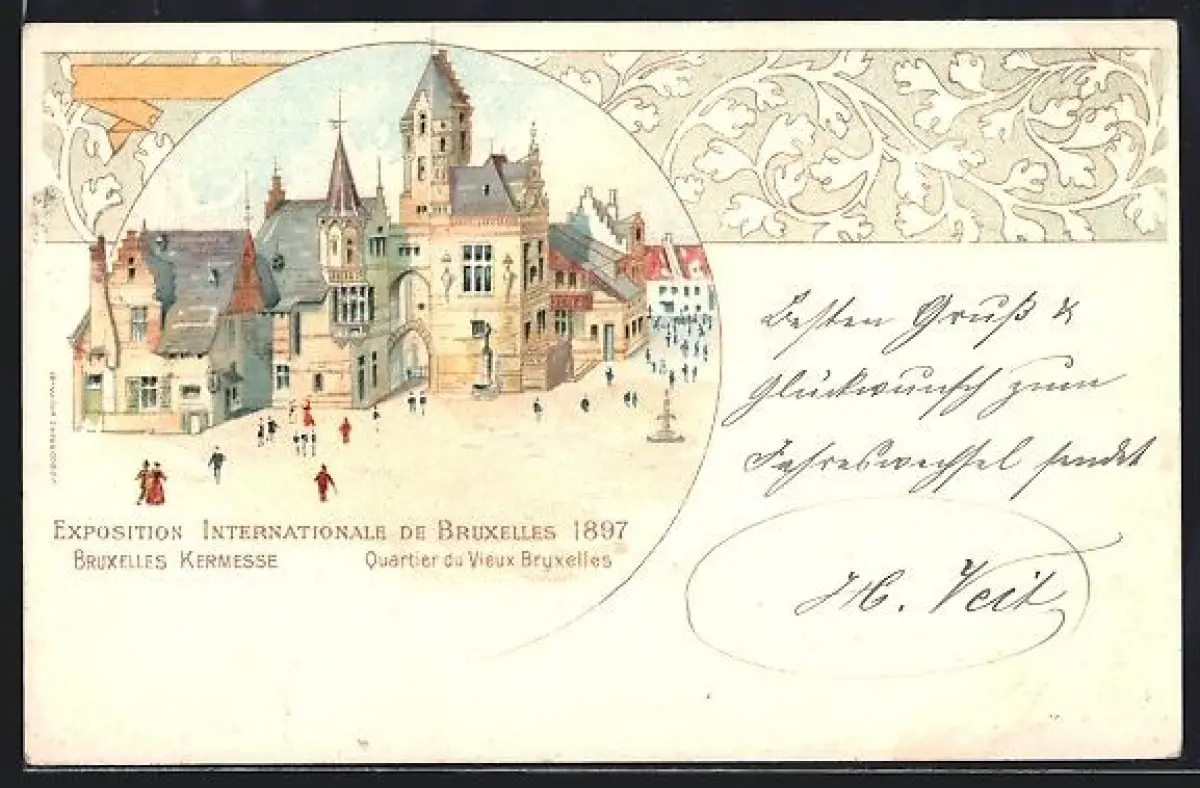 EXPOSITION INTERNATIONALE DE BRUXELLES 1897
BRUXELLES KERMESSE Quartier du Vieux Bruxelles
Besten Gruß &
Glückwunsch zum
Jahreswechsel sendet
H. Veit